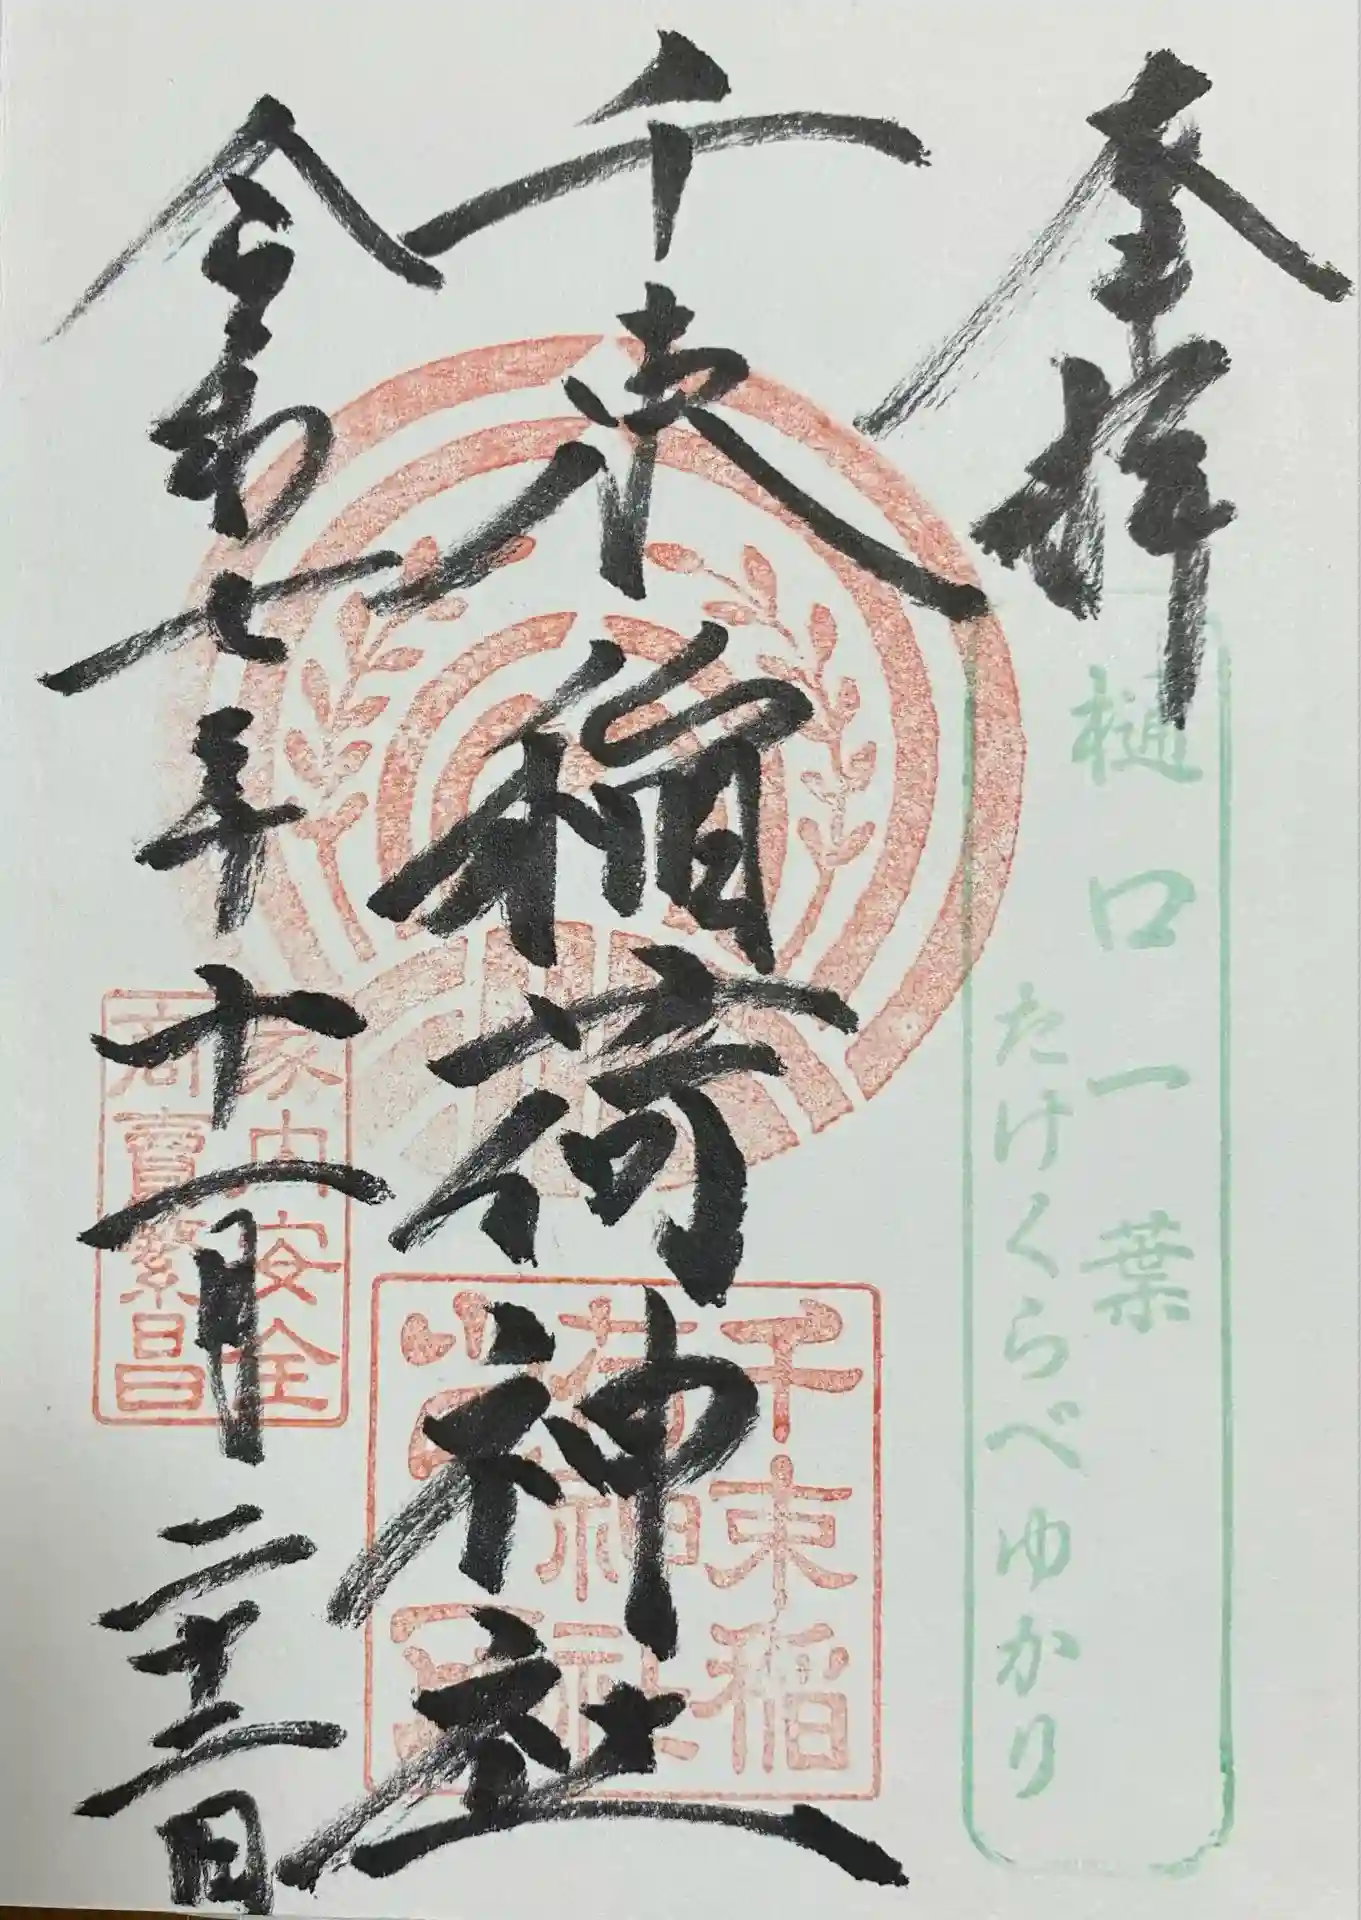 奉拝
樋口一葉
たけくらべゆかり
千束稲荷神社
千束稲
荷神社
令和七年十一月二十三日
家内安全
商賣繁昌